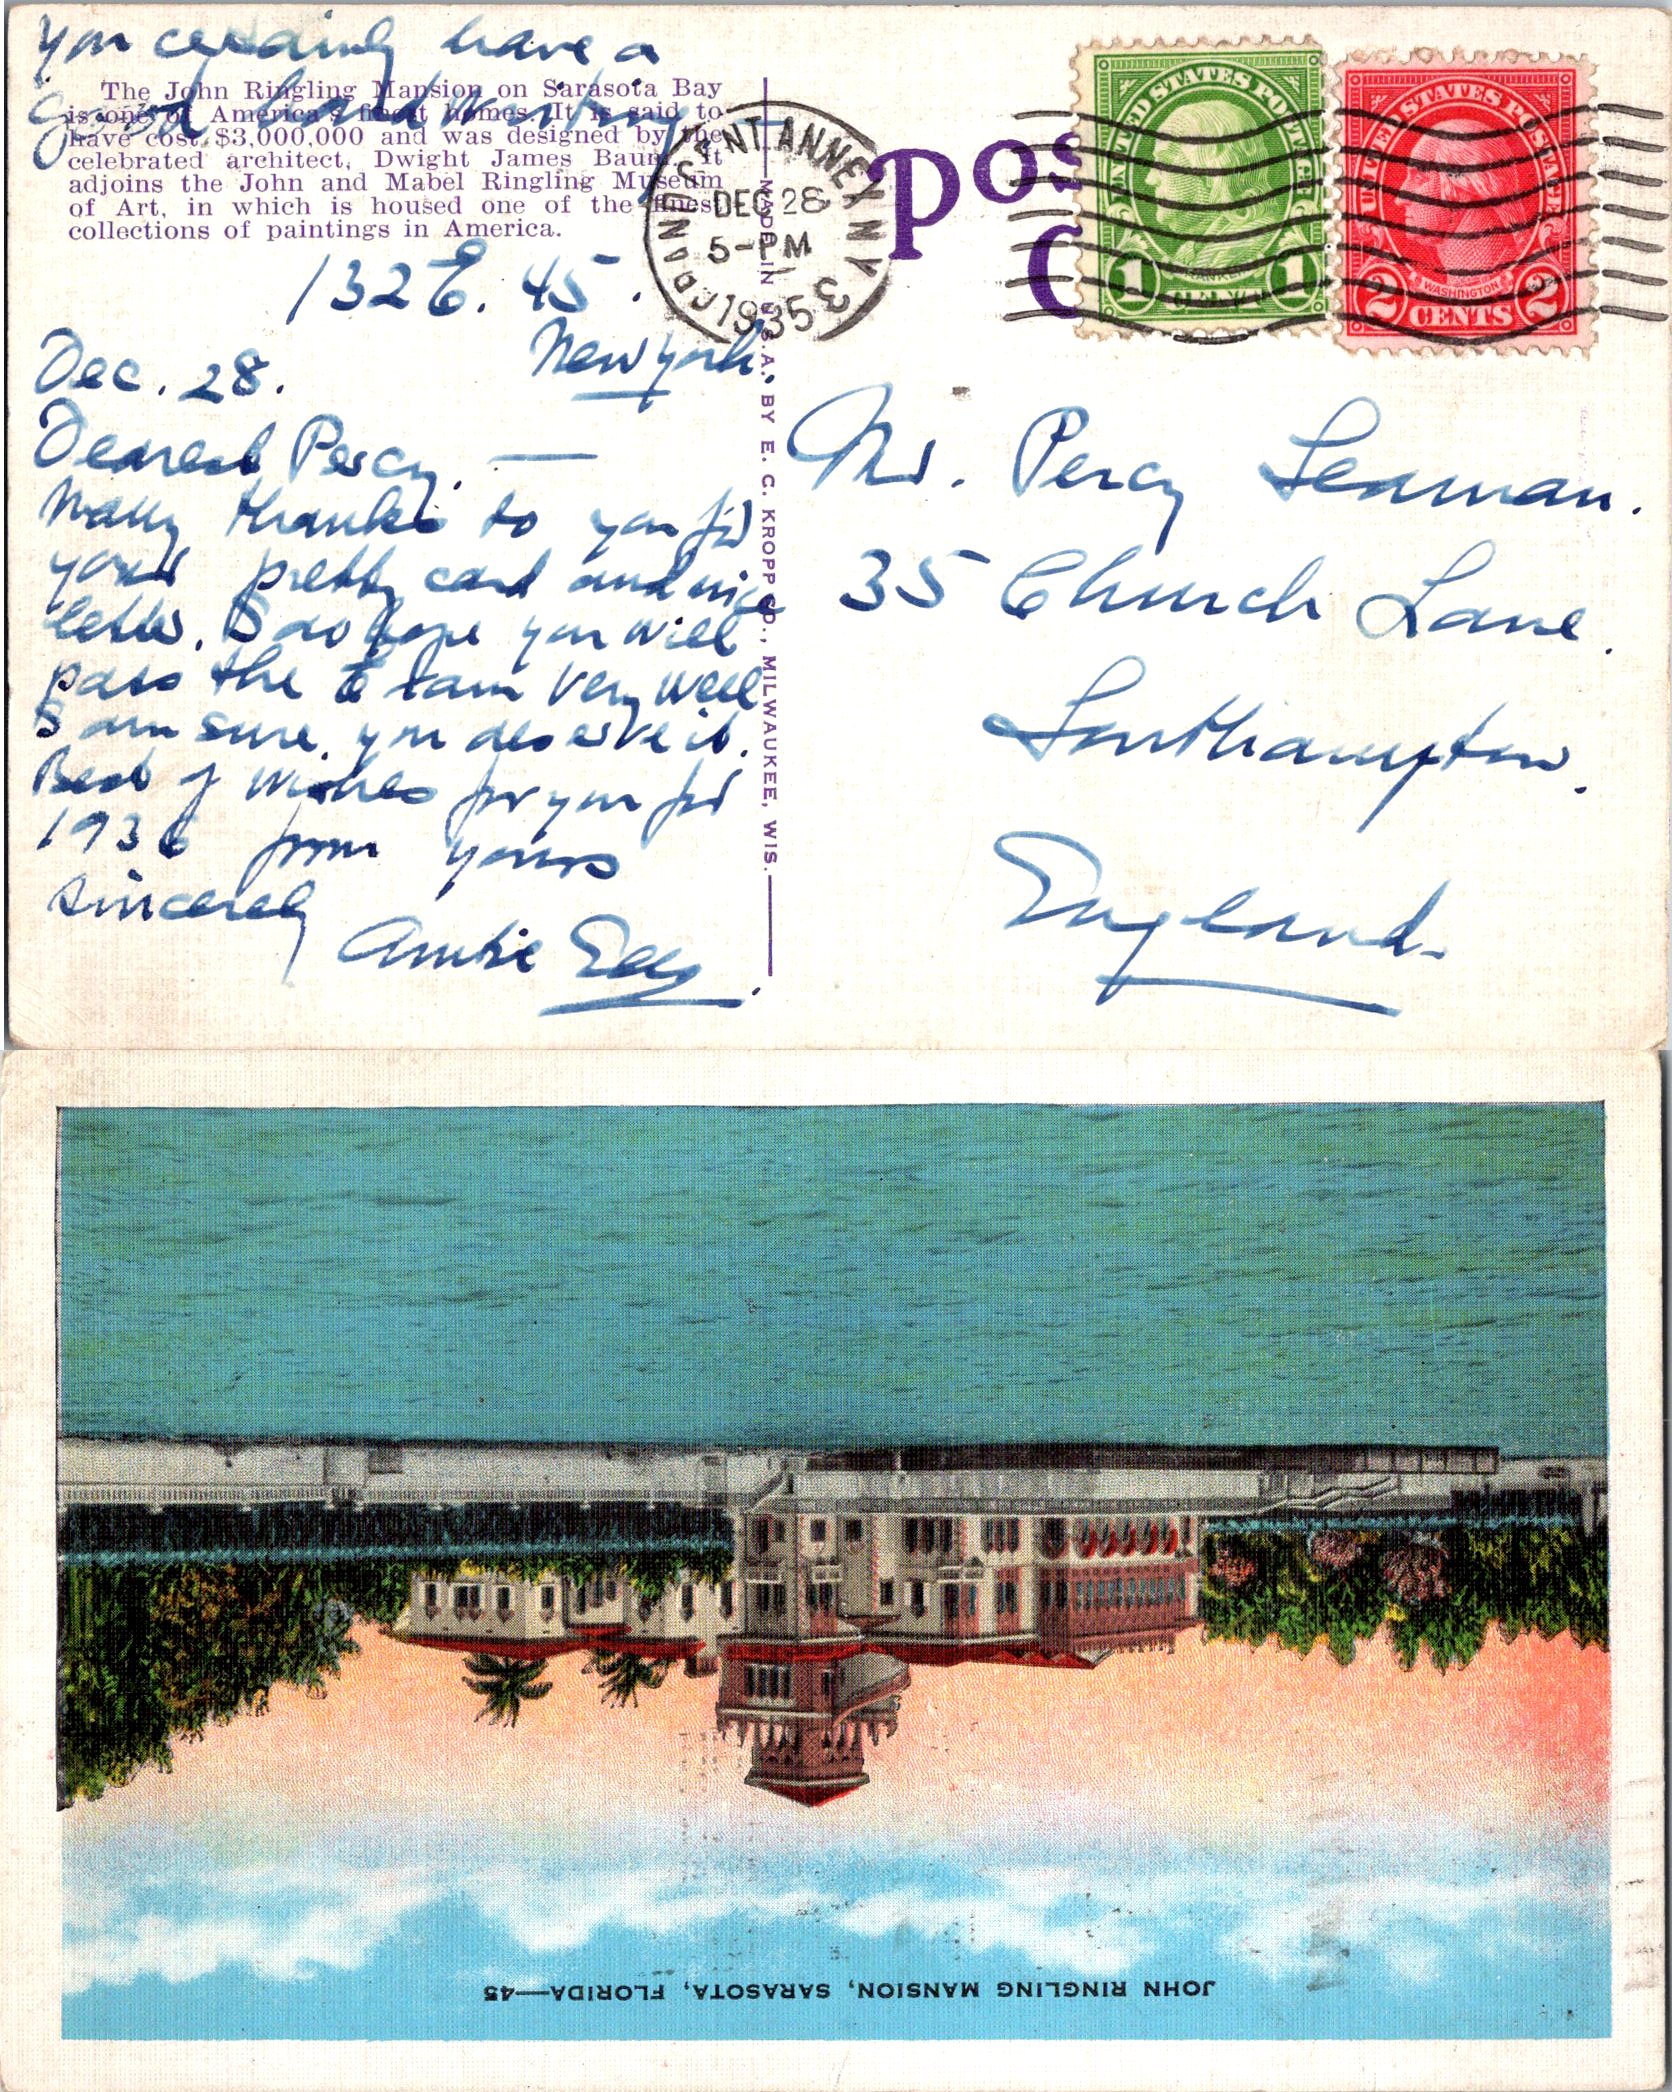 you certainly have a
good handwriting
The John Ringling Mansion on Sarasota Bay
is one of America's finest homes. It is said to
have cost $3,000,000 and was designed by the
celebrated architect, Dwight James Baum. It
adjoins the John and Mabel Ringling Museum
of Art, in which is housed one of the finest
collections of paintings in America.
132 E. 45.
New York.
Dec. 28.
Dearest Percy. —
Many thanks to you for
your pretty card and nice
letter. I do hope you will
pass the Exam very well
I am sure, you deserve it.
Best of wishes for you for
1936 from yours
sincerely
Auntie Edy.
MADE IN U.S.A. BY E. C. KROPP CO., MILWAUKEE, WIS.
GRAND CENT ANNEX N.Y. 3
DEC 28
5-PM
1935
POS
C
UNITED STATES POSTAGE
1 CENT 1
UNITED STATES POSTAGE
WASHINGTON
2 CENTS 2
Mr. Percy Seaman.
35 Church Lane.
Southampton.
England.
JOHN RINGLING MANSION, SARASOTA, FLORIDA—45